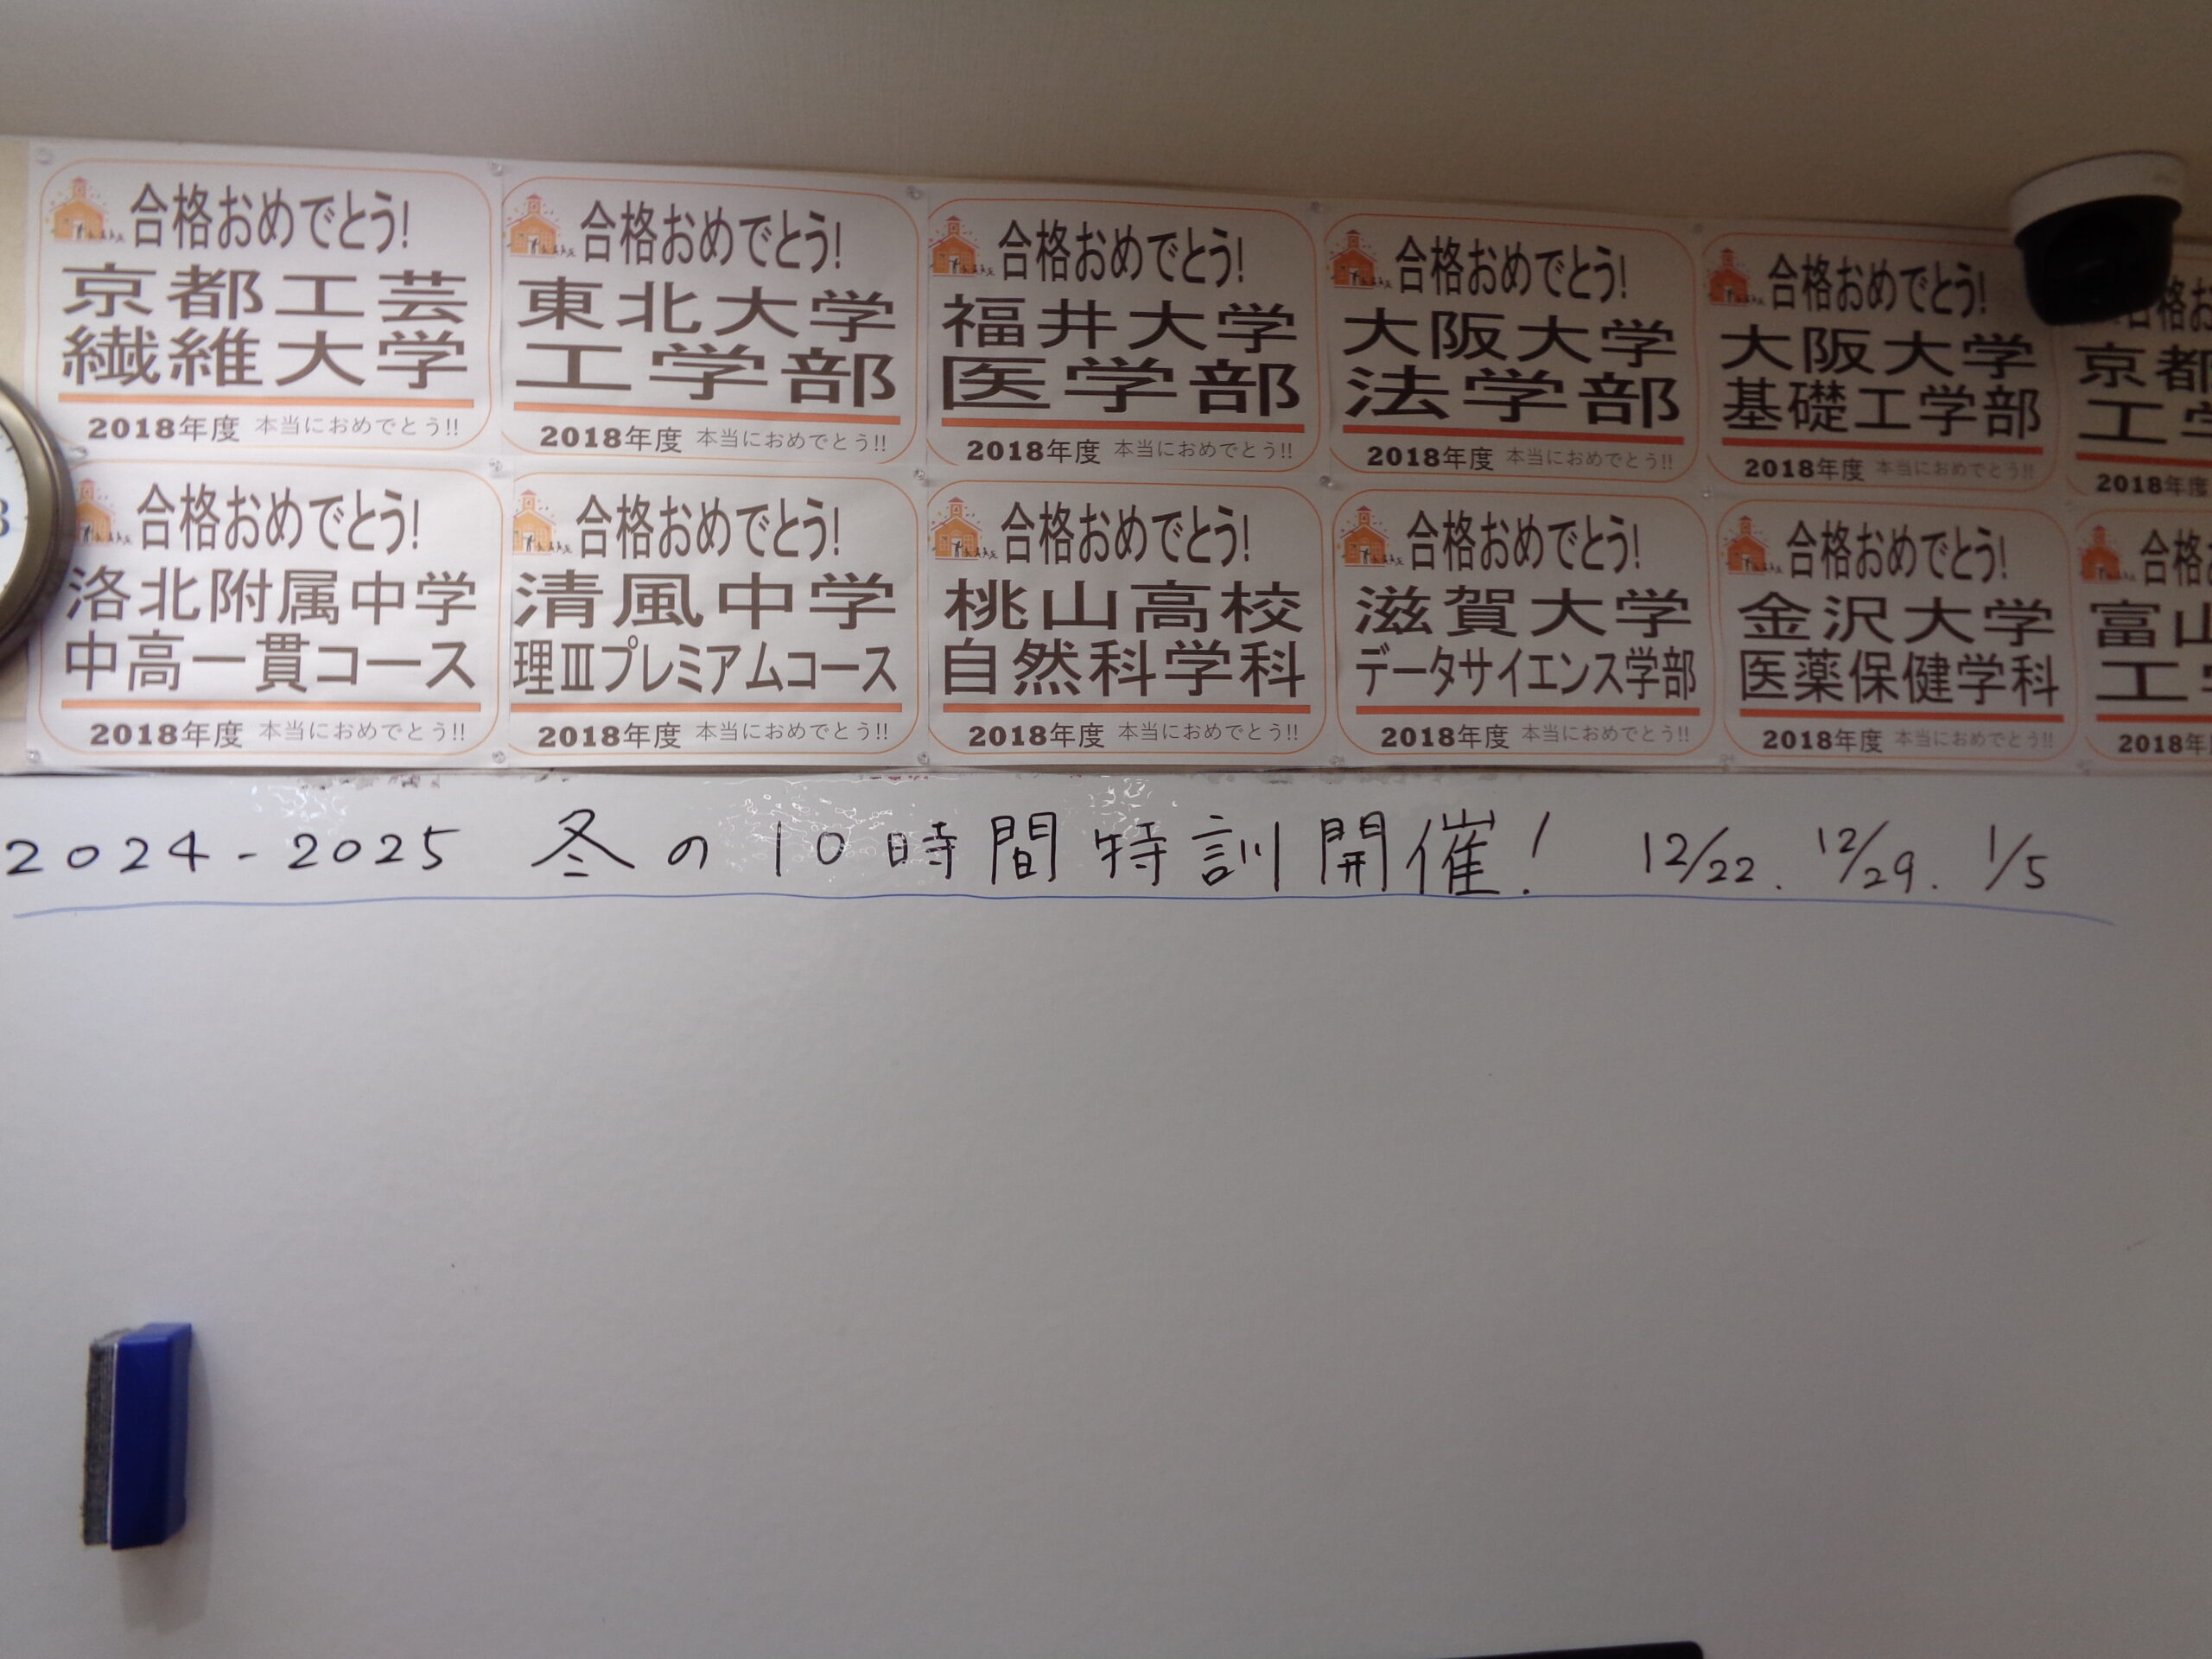 合格おめでとう!
京都工芸
繊維大学
2018年度 本当におめでとう!!
合格おめでとう!
東北大学
工学部
2018年度 本当におめでとう!!
合格おめでとう!
福井大学
医学部
2018年度 本当におめでとう!!
合格おめでとう!
大阪大学
法学部
2018年度 本当におめでとう!!
合格おめでとう!
大阪大学
基礎工学部
2018年度 本当におめでとう!!
合格お
京都
工学
2018年度
合格おめでとう!
洛北附属中学
中高一貫コース
2018年度 本当におめでとう!!
合格おめでとう!
清風中学
理Ⅲプレミアムコース
2018年度 本当におめでとう!!
合格おめでとう!
桃山高校
自然科学科
2018年度 本当におめでとう!!
合格おめでとう!
滋賀大学
データサイエンス学部
2018年度 本当におめでとう!!
合格おめでとう!
金沢大学
医薬保健学科
2018年度 本当におめでとう!!
合格
富山
工
2018年
3
2024-2025 冬の10時間特訓開催! 12/22. 12/29. 1/5